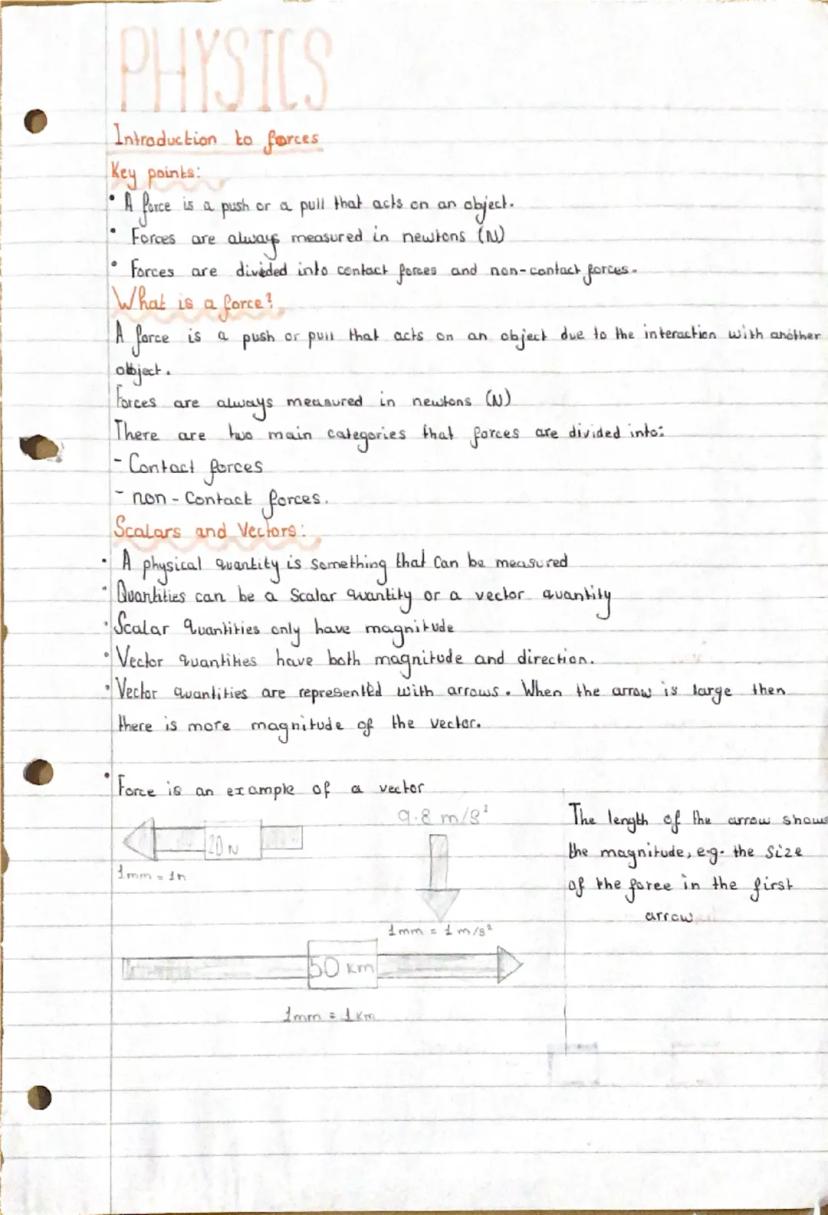 PHYSICS
Introduction to forces
Key points:
• A force is a push or a pull that acts on an object.
• Forces are always measured in newtons (N)
• Forces are divided into contact forces and non-contact forces.
What is a force?
A force is a push or pull that acts on an object due to the interaction with another
object.
Forces are always measured in newtons (N)
There are two main categories that forces are divided into:
- Contact forces
- non-Contact forces.
Scalars and Vectors:
• A physical quantity is something that Can be measured
• Quantities can be a Scalar quantity or a vector quantity
• Scalar quantities only have magnitude
• Vector quantities have both magnitude and direction.
• Vector quantities are represented with arrows. When the arrow is large then
there is more magnitude of the vector.
• Force is an example of a vector
20 N
1mm = 1n
9.8 m/s²
1mm = 1 m/s²
50 km
1mm = 1 km
The length of the arrow shows
the magnitude, e.g. the Size
of the force in the first
arrow